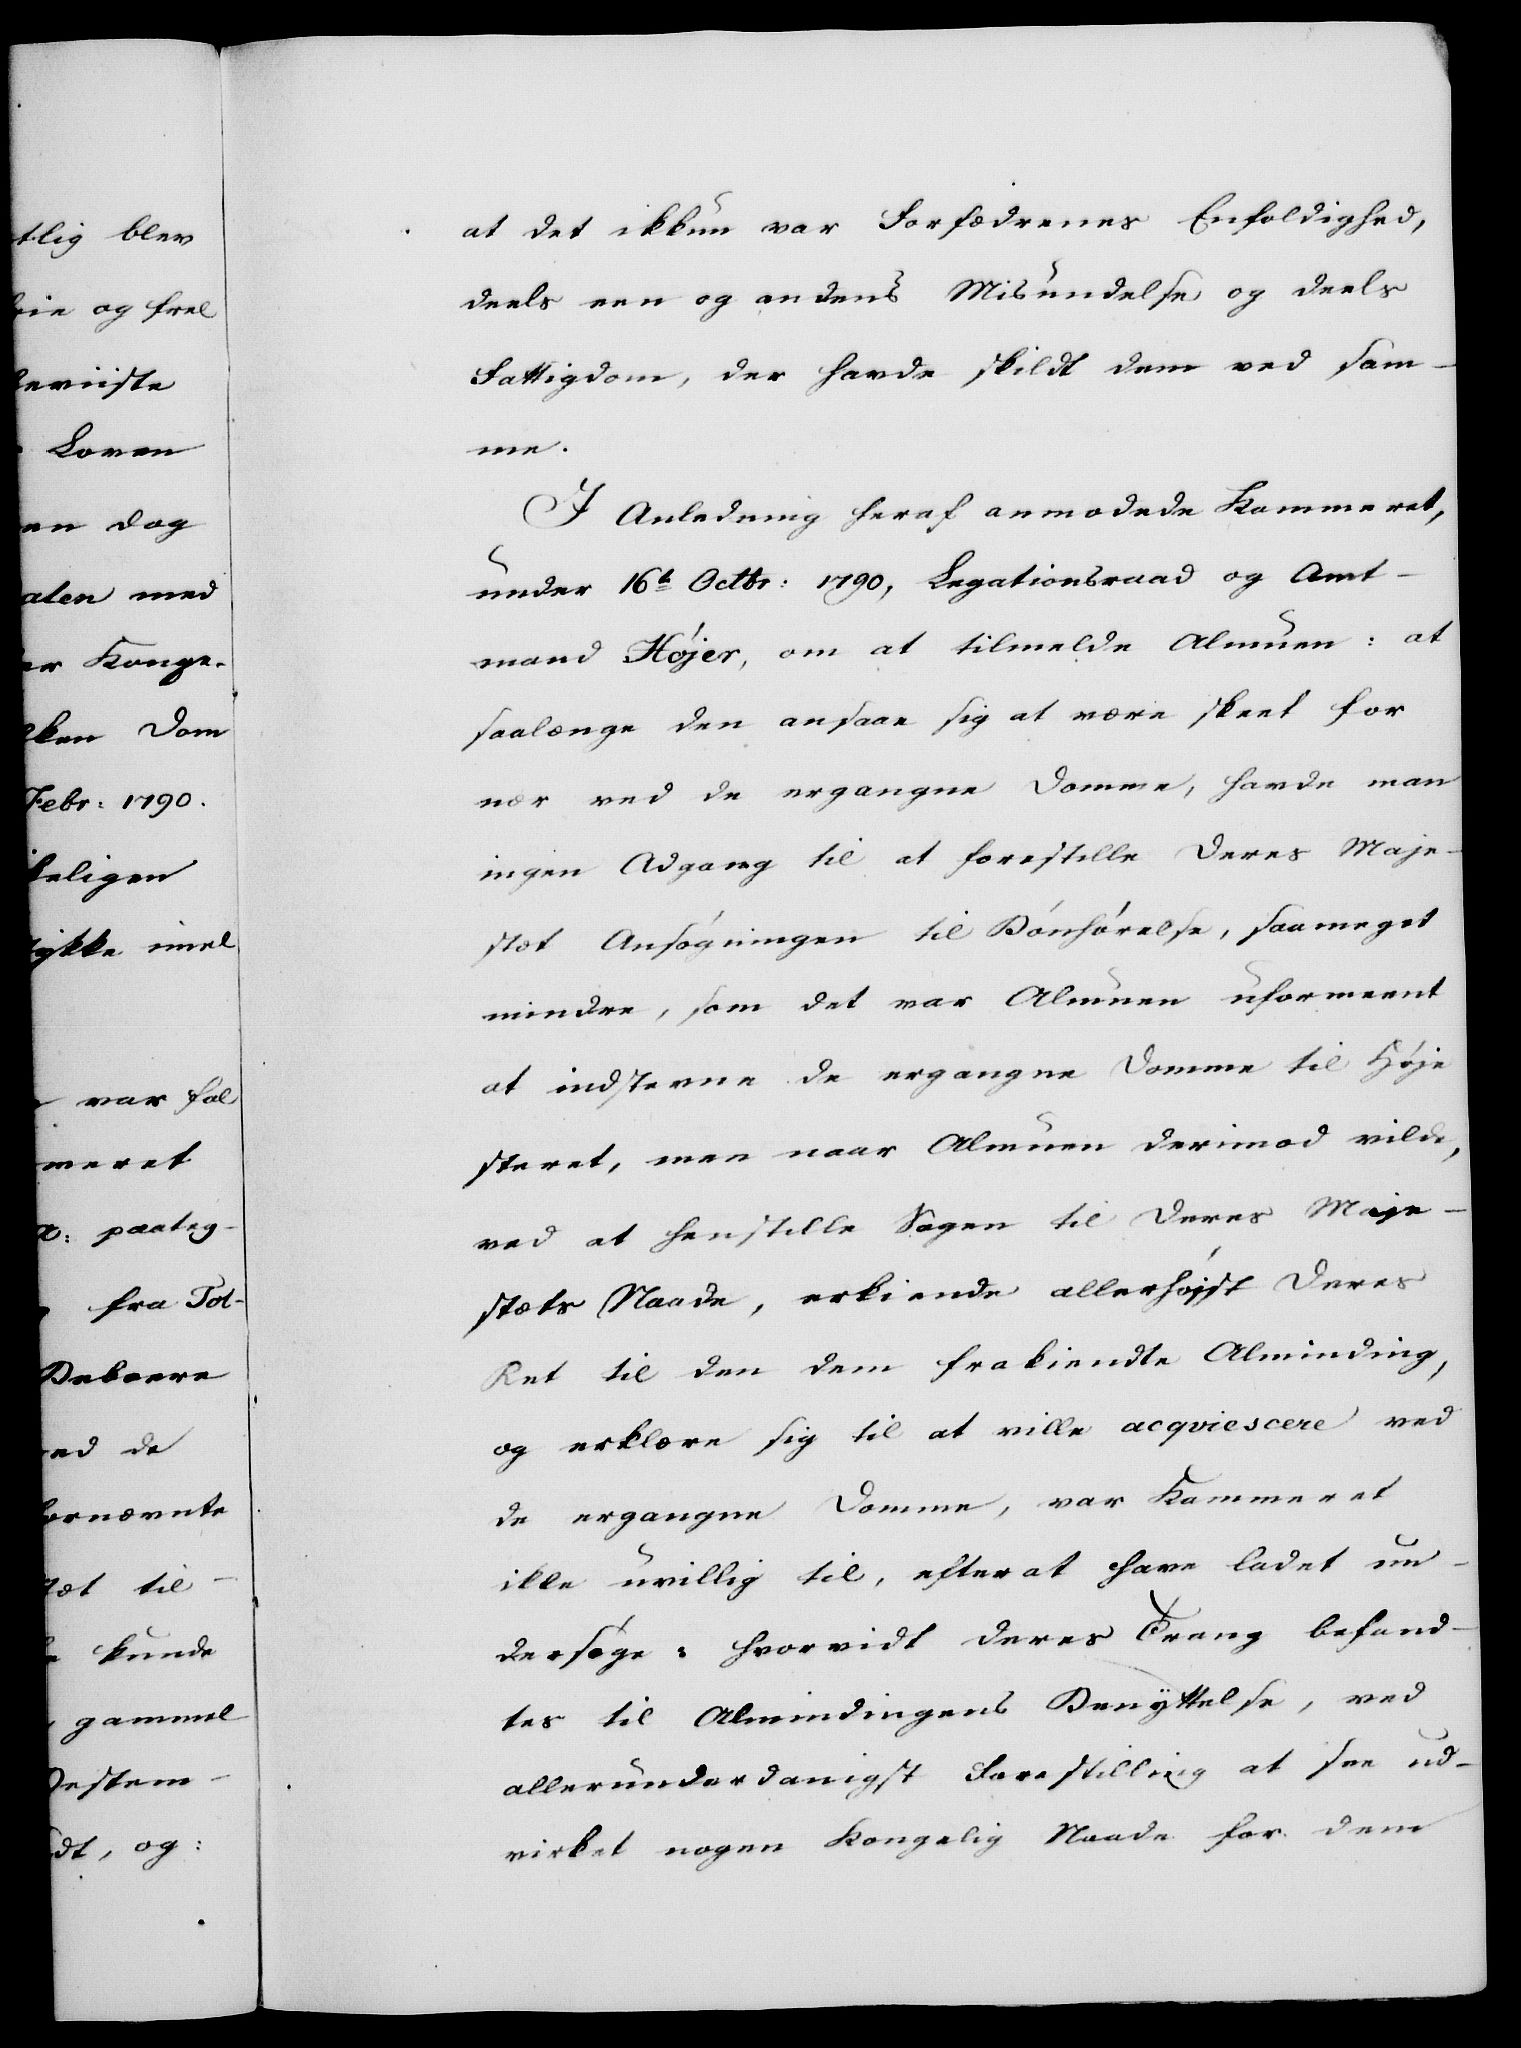 tlig blev
og frel
eviiste
Loven
en dog
alen med
er Konge-
ken Dom
Febr: 1790.
seligen
ykke imel
var fal
meret
paateg-
fra Tol-
Deboere
ed de
ornævnte
tæt til
kunde
gammel
Bestem-
dt, og:
at det ikkun var Forfædrenes Enfoldighed,
deels een og andens Misundelse og deels
Fattigdom, der havde skildt dem ved sam-
me.
I Anledning heraf anmodede Kammeret,
under 16t Octbr: 1790, Legationsraad og Amt-
mand Højer, om at tilmelde Almuen: at
saalænge den ansaae sig at være skeet for
nær ved de ergangne Domme, havde man
ingen Adgang til at forestille Deres Maje-
stæt Ansøgningen til Bønhørelse, saameget
mindre, som det var Almuen uformeent
at indstævne de ergangne Domme til Høje
steret, men naar Almuen derimod vilde,
ved at henstille Sagen til Deres Maje-
stæts Naade, erkiende allerhøjst Deres
Ret til den dem frakiendte Alminding,
og erklære sig til at ville acqviescere ved
de ergangne Domme, var Kammeret
ikke uvillig til, efter at have ladet un-
dersøge: hvorvidt deres Trang befand-
tes til Almindingens Benÿttelse, ved
allerunderdanigst Forestilling at see ud-
virket nogen Kongelig Naade for dem